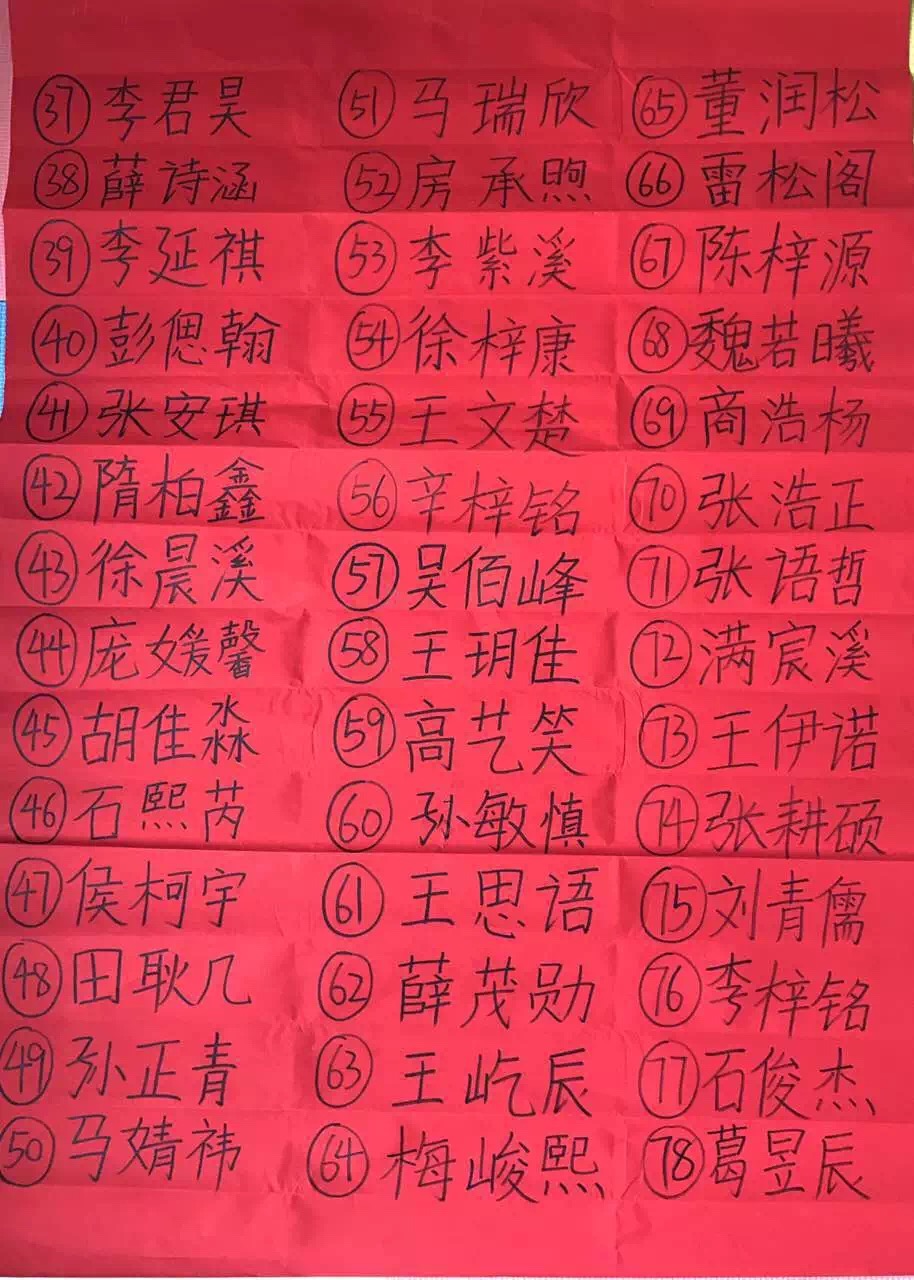 ㊲ 李君昊
㊳ 薛诗涵
㊴ 李延祺
㊵ 彭偲翰
㊶ 张安琪
㊷ 隋柏鑫
㊸ 徐晨溪
㊹ 庞媛馨
㊺ 胡佳淼
㊻ 石熙芮
㊼ 侯柯宇
㊽ 田耿几
㊾ 孙正青
㊿ 马婧祎
51 马瑞欣
52 房承煦
53 李紫溪
54 徐梓康
55 王文楚
56 辛梓铭
57 吴佰峰
58 王玥佳
59 高艺笑
60 孙敏慎
61 王思语
62 薛茂勋
63 王屹辰
64 梅峻熙
65 董润松
66 雷松阁
67 陈梓源
68 魏若曦
69 商浩杨
70 张浩正
71 张语哲
72 满宸溪
73 王伊诺
74 张耕硕
75 刘青儒
76 李梓铭
77 石俊杰
78 葛昱辰